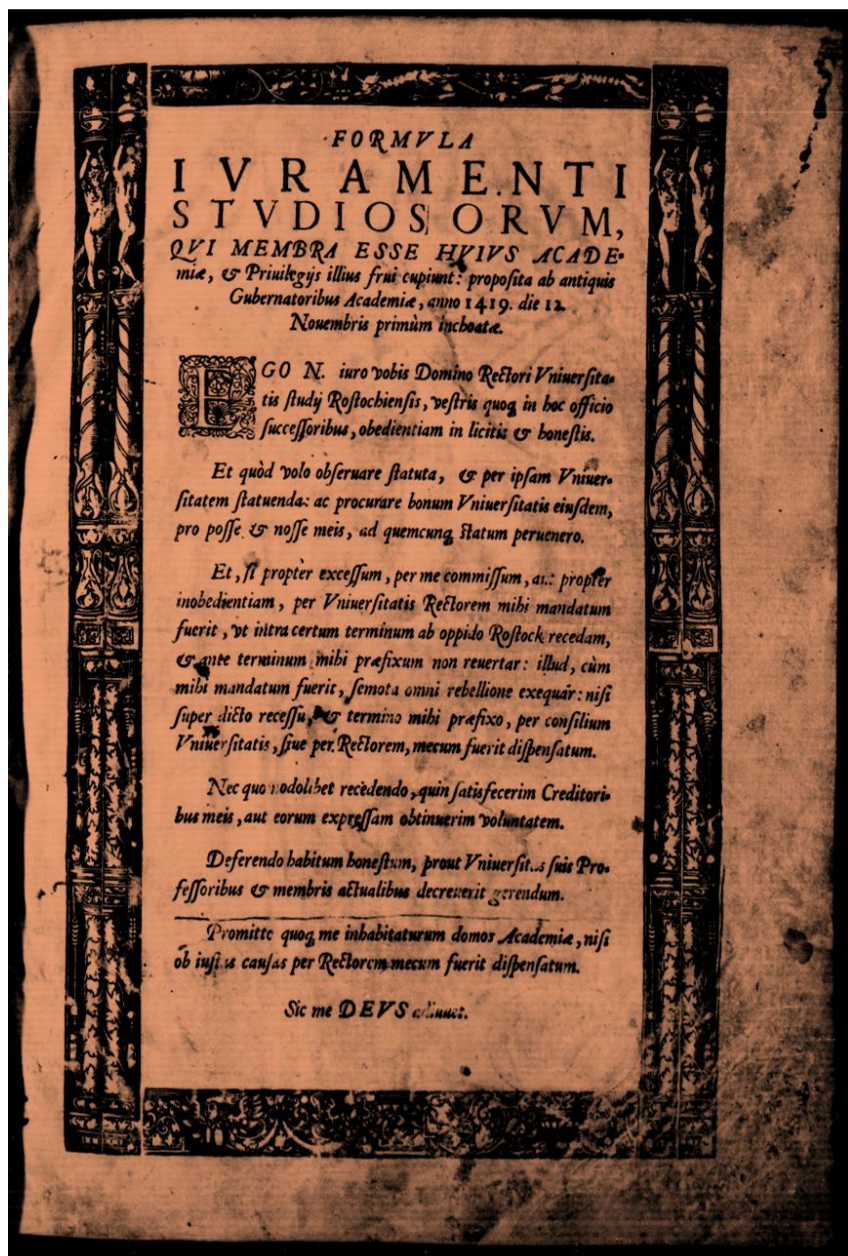 FORMVLA
IVRAMENTI
STVDIOSORVM,
QVI MEMBRA ESSE HVIVS ACADE-
miæ, & Priuilegijs illius frui cupiunt: proposita ab antiquis
Gubernatoribus Academiæ, anno 1419. die 12.
Nouembris primùm inchoatæ.
EGO N. iuro vobis Domino Rectori Vniuersita-
tis studij Rostochiensis, vestris quoq; in hoc officio
successoribus, obedientiam in licitis & honestis.
Et quòd volo obseruare statuta, & per ipsam Vniuer-
sitatem statuenda: ac procurare bonum Vniuersitatis eiusdem,
pro posse & nosse meis, ad quemcunq; statum peruenero.
Et, si propter excessum, per me commissum, aut propter
inobedientiam, per Vniuersitatis Rectorem mihi mandatum
fuerit, vt intra certum terminum ab oppido Rostock recedam,
& ante terminum mihi præfixum non reuertar: illud, cùm
mihi mandatum fuerit, semota omni rebellione exequar: nisi
super dicto recessu, & termino mihi præfixo, per consilium
Vniuersitatis, siue per Rectorem, mecum fuerit dispensatum.
Nec quomodolibet recedendo, quin satisfecerim Creditori-
bus meis, aut eorum expressam obtinuerim voluntatem.
Deferendo habitum honestum, prout Vniuersitas suis Pro-
fessoribus & membris actualibus decreuerit gerendum.
Promitto quoq; me inhabitaturum domos Academiæ, nisi
ob iustas causas per Rectorem mecum fuerit dispensatum.
Sic me DEVS adiuuet.